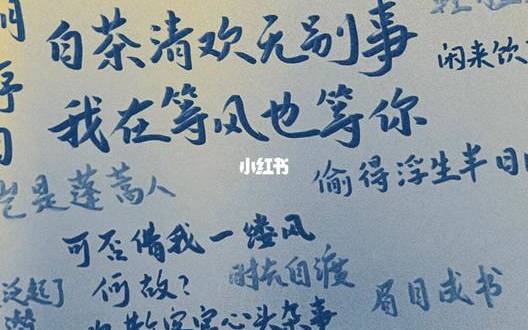 闲来饮
白茶清欢无别事
我在等风也等你
小红书
偷得浮生半日
岂是蓬蒿人
可否借我一缕风
何故?
时去自渡
眉目成书
泛起了
心头杂事